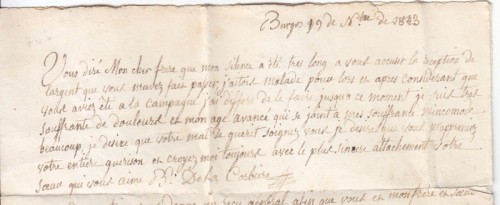 Burgos 19 de Nbre de 1833
Vous diré Mon cher frere que mon silence a été tres long a vous accuser la reception de
largent que vous mavez fait passer, j'aitois malade pour lors et apres considerant que
vous aviez eté a la campagne j'ai diferé de le faire jusqu'a ce moment je suis tres
souffrante de douleurs et mon age avancé qui se joint a mes souffrance mincomode
beaucoup, je desire que votre mal se guerit soignez vous je desire que vous
votre entiere guerison et croyez moi toujours avec le plus sincere attachement votre
sœur qui vous aime
recu general afin que vous et mon frere et sœur